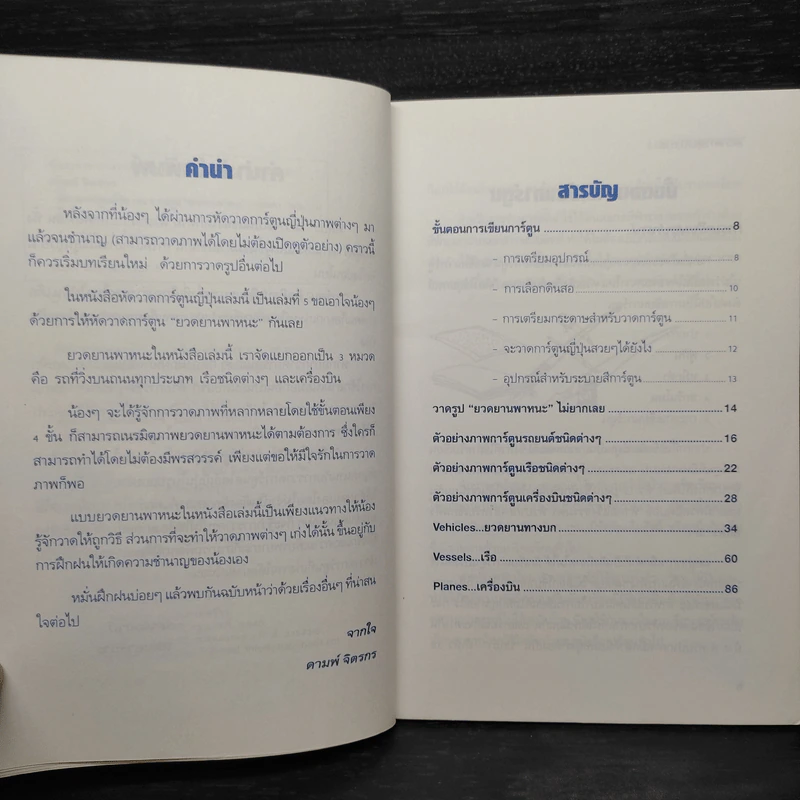 คำนำ
หลังจากที่น้องๆ ได้ผ่านการหัดวาดการ์ตูนญี่ปุ่นภาพต่างๆ มา
แล้วจนชำนาญ (สามารถวาดภาพได้โดยไม่ต้องเปิดดูตัวอย่าง) คราวนี้
ก็ควรเริ่มบทเรียนใหม่ ด้วยการวาดรูปอื่นต่อไป
ในหนังสือหัดวาดการ์ตูนญี่ปุ่นเล่มนี้ เป็นเล่มที่ 5 ขอเอาใจน้องๆ
ด้วยการให้หัดวาดการ์ตูน "ยวดยานพาหนะ" กันเลย
ยวดยานพาหนะในหนังสือเล่มนี้ เราจัดแยกออกเป็น 3 หมวด
คือ รถที่วิ่งบนถนนทุกประเภท เรือชนิดต่างๆ และเครื่องบิน
น้องๆ จะได้รู้จักการวาดภาพที่หลากหลายโดยใช้ขั้นตอนเพียง
4 ขั้น ก็สามารถเนรมิตภาพยวดยานพาหนะได้ตามต้องการ ซึ่งใครก็
สามารถทำได้โดยไม่ต้องมีพรสวรรค์ เพียงแต่ขอให้มีใจรักในการวาด
ภาพก็พอ
แบบยวดยานพาหนะในหนังสือเล่มนี้เป็นเพียงแนวทางให้น้อง
รู้จักวาดให้ถูกวิธี ส่วนการที่จะทำให้วาดภาพต่างๆ เก่งได้นั้น ขึ้นอยู่กับ
การฝึกฝนให้เกิดความชำนาญของน้องเอง
หมั่นฝึกฝนบ่อยๆ แล้วพบกันฉบับหน้าว่าด้วยเรื่องอื่นๆ ที่น่าสน
ใจต่อไป
จากใจ
ดามพ์ จิตรกร
สารบัญ
ขั้นตอนการเขียนการ์ตูน 8
- การเตรียมอุปกรณ์ 8
- การเลือกดินสอ 10
- การเตรียมกระดาษสำหรับวาดการ์ตูน 11
- จะวาดการ์ตูนญี่ปุ่นสวยๆได้ยังไง 12
- อุปกรณ์สำหรับระบายสีการ์ตูน 13
วาดรูป "ยวดยานพาหนะ" ไม่ยากเลย 14
ตัวอย่างภาพการ์ตูนรถยนต์ชนิดต่างๆ 16
ตัวอย่างภาพการ์ตูนเรือชนิดต่างๆ 22
ตัวอย่างภาพการ์ตูนเครื่องบินชนิดต่างๆ 28
Vehicles...ยวดยานทางบก 34
Vessels...เรือ 60
Planes...เครื่องบิน 86